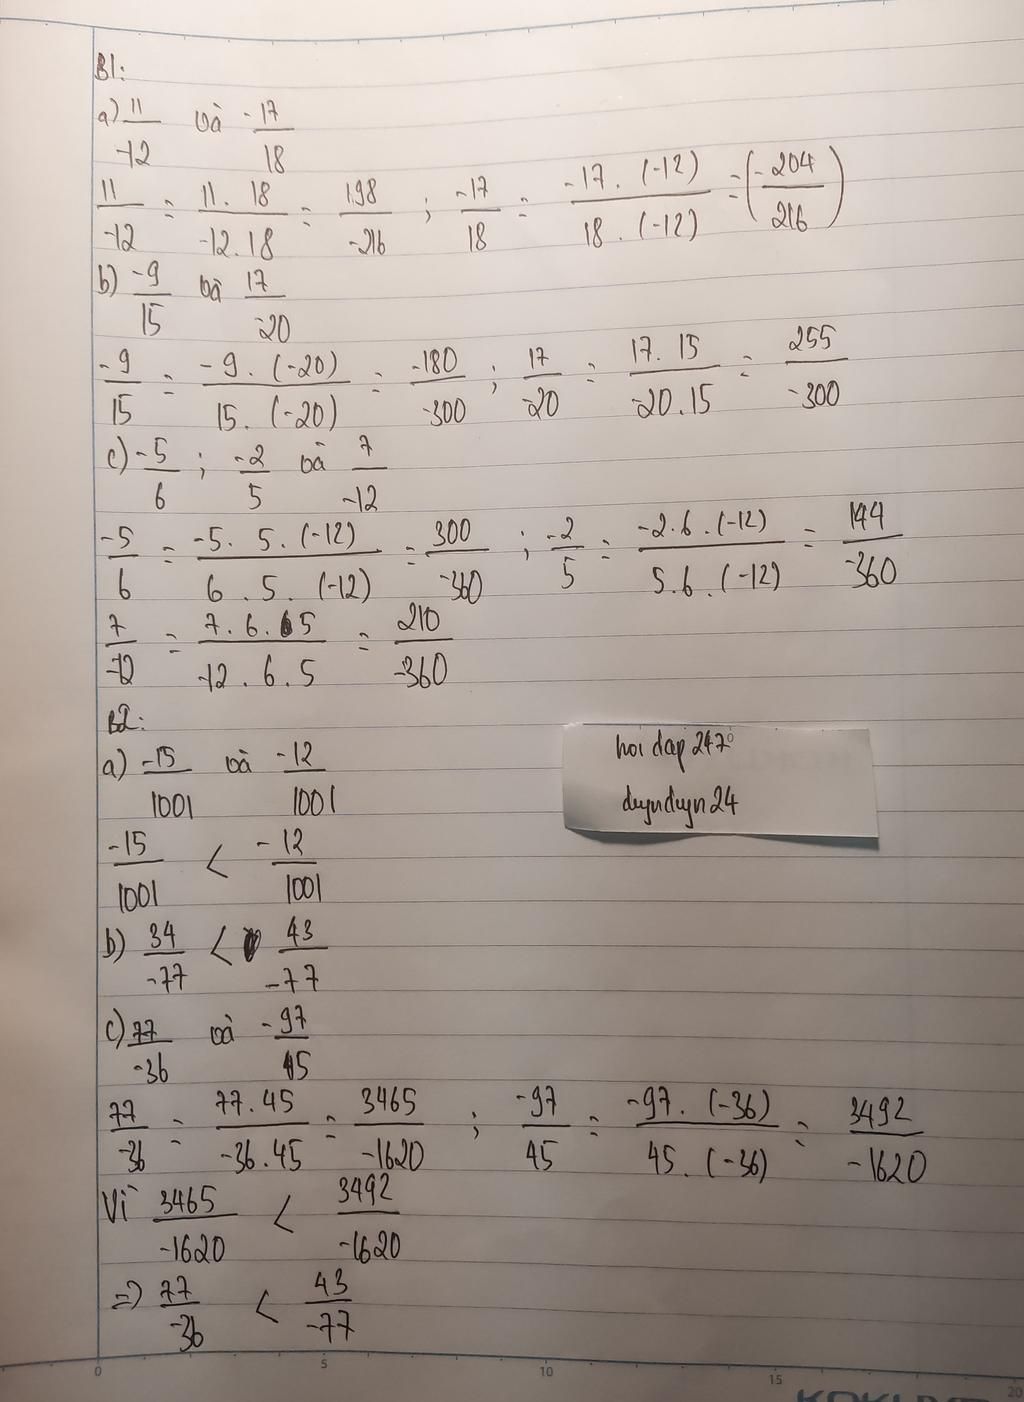 B1:
a) 11/-12 và -17/18
11/-12 = 11.18/-12.18 = 198/-216 ; -17/18 = -17.(-12)/18.(-12) = (-204/216)
b) -9/15 và 17/-20
-9/15 = -9.(-20)/15.(-20) = -180/-300 ; 17/-20 = 17.15/-20.15 = 255/-300
c) -5/6 ; -2/5 và 7/-12
-5/6 = -5.5.(-12)/6.5.(-12) = 300/-360 ; -2/5 = -2.6.(-12)/5.6.(-12) = 144/-360
7/-12 = 7.6.5/-12.6.5 = 210/-360
B2:
hoi dap 247
a) -15/1001 và -12/1001
duynduyn24
-15/1001 < -12/1001
b) 34/-77 < 43/-77
c) 77/-36 và -97/45
77/-36 = 77.45/-36.45 = 3465/-1620 ; -97/45 = -97.(-36)/45.(-36) = 3492/-1620
Vì 3465/-1620 < 3492/-1620
=> 77/-36 < 43/-77
0 5 10 15 20